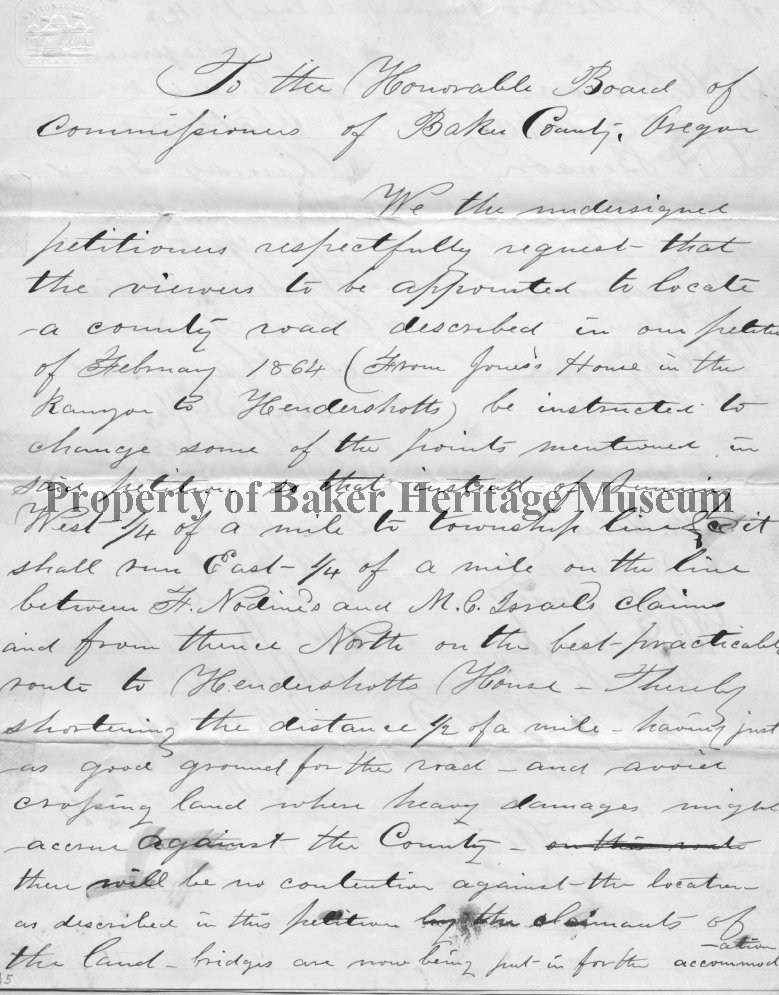 To the Honorable Board of
Commissioners of Baker County, Oregon
We the undersigned
petitioners respectfully request that
the viewers to be appointed to locate
a county road described in our petition
of February 1864 (From Jones's House in the
Kanyon to Hendershotts) be instructed to
change some of the points mentioned in
said petition so that instead of running
Property of Baker Heritage Museum
West 1/4 of a mile to township line &c it
shall run East 1/4 of a mile on the line
between F. Nodine's and M. C. Israel's claims
and from thence North on the best practicable
route to Hendershotts House - Thereby
shortening the distance 1/2 of a mile - having just
as good ground for the road - and avoid
crossing land where heavy damages might
accrue against the County - on this route
there will be no contention against the location
as described in this petition by the claimants of
the land - bridges are now being put in for the accommodation
5